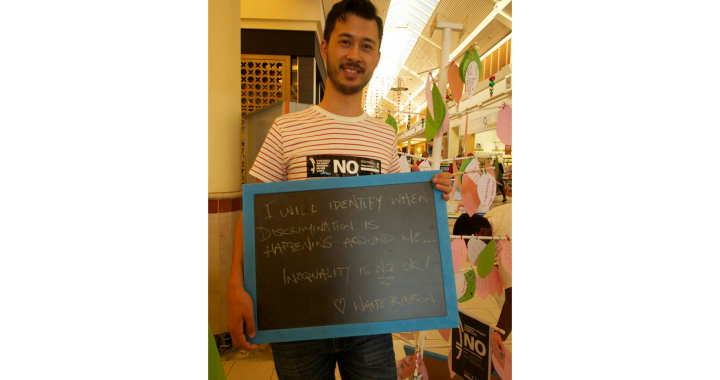 NO
I WILL IDENTIFY WHEN
DISCRIMINATION IS
HAPPENING AROUND ME...
INEQUALITY IS NOT OK!
♡ WHITE RIBBON
NO